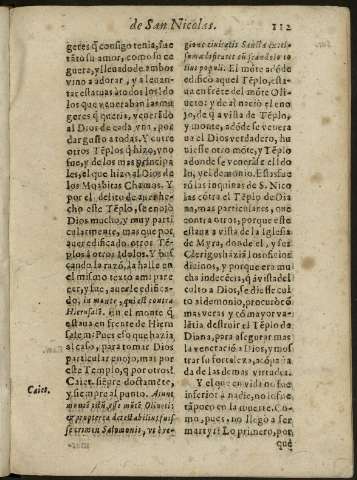 de San Nicolas. 112
geres q̃ consigo tenia, fue
tãto su amor, como su ce
guera, y lleuado de ambos
vino a adorar, y a leuan-
tar estatuas a todos los Ido
los que veneraban las mu
geres q̃ queria, veneraño
al Dios de cada vna, por
dar gusto a todas. Y entre
otros Tẽplos q̃ hizo, vno
fue, y de los mas principa
les, el que hizo al Dios de
los Moabitas Chamos. Y
por el delito de auer he-
cho este Tẽplo, se enojò
Dios mucho, y muy parti
cularmente, mas que por
auer edificado otros Tẽ-
plos à otros Idolos. Y bus
cando la razõ, la halle en
el mismo texto a mi pare
cer, y fue, auerle edifica-
do, in monte, qui est contra
Hierusalẽ. en el monte q̃
estaua en frente de Hieru
salem: Pues eso que hazia
al caso, para tomar Dios
particular enojo, mas por
este Templo, q̃ por otros?
Caiet. siẽpre doctamẽte,
y siempre al punto. Aiunt
montẽ istũ, esse mõtẽ Oliueti:
ex propterea detestabilius fuis
se crimen Salomonis, ut è re-
Caiet.
gione ciuitatis Sanctæ excel-
sum ædificaret in scandalo to
tius populi. El mõte a dõde
edificò aquel Tẽplo, esta-
ua en frẽte del mõte Oli-
ueto: y de aì naciò el eno
jo, de q̃ a vista de Tẽplo,
y mõte, adõde se venera
ua el Dios verdadero, hu
uiesse otro mõte, y Tẽplo
adonde se venerasse el Ido
lo, y el demonio. Estas fue
rõ las inquinas de S. Nico
las cõtra el Tẽplo de Dia
na, mas particulares, que
contra otros, porque este
estaua a vista de la Iglesia
de Myra, donde el, y sus
Clerigos hazia los oficios
diuinos, y porque era mu
cha indecẽcia, q̃ a vista del
culto a Dios, se diesse cul
to al demonio, procurò cõ
mas veras, y cõ mayor va-
lẽtia, destruir el Tẽplo de
Diana, para asegurar mas
la veneraciõ a Dios, y mos
trar su fortaleza, acõpaña
da de las demas virtudes.
Y el que en vida no fue
inferior à nadie, no lo fue
tãpoco en la muerte. Co-
mo, pues, no llegò a ser
martyr? Lo primero, por
que